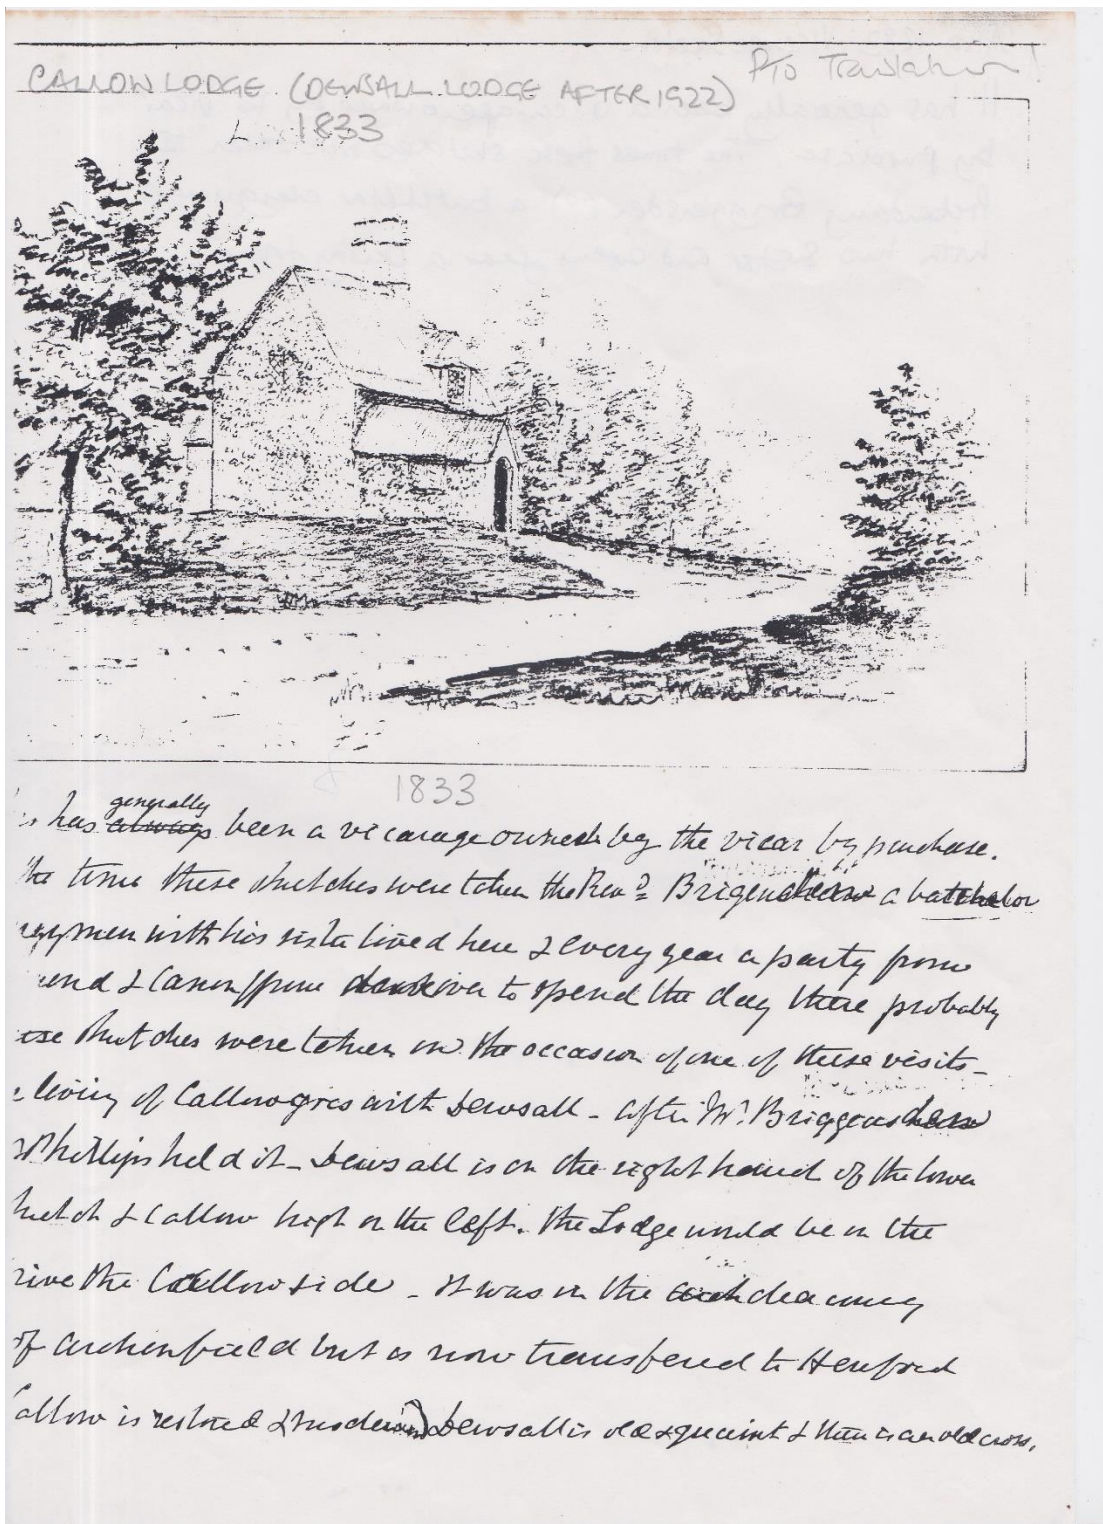 P/O Translation!
CALLOW LODGE. (DEWSALL LODGE AFTER 1922)
1833
1833
has generally always been a vicarage owned by the vicar by purchase.
the time these sketches were taken the Revd Brigenshaw a batchelor
gymen with his sister lived here & every year a party from
end & Canon ffrome over to spend the day there probably
ese sketches were taken on the occasion of one of these visits_
living of Callow goes with Dewsall _ after Mr. Briggenshaw
Phillips held it _ Dewsall is on the right hand of the lower
ketch & Callow high on the left. The Lodge would be on the
rive the Callow side _ It was in the deanery
of Archenfield but is now transfered to Hereford
allow is restored & modern Dewsall is old & quaint & there is an old cross.